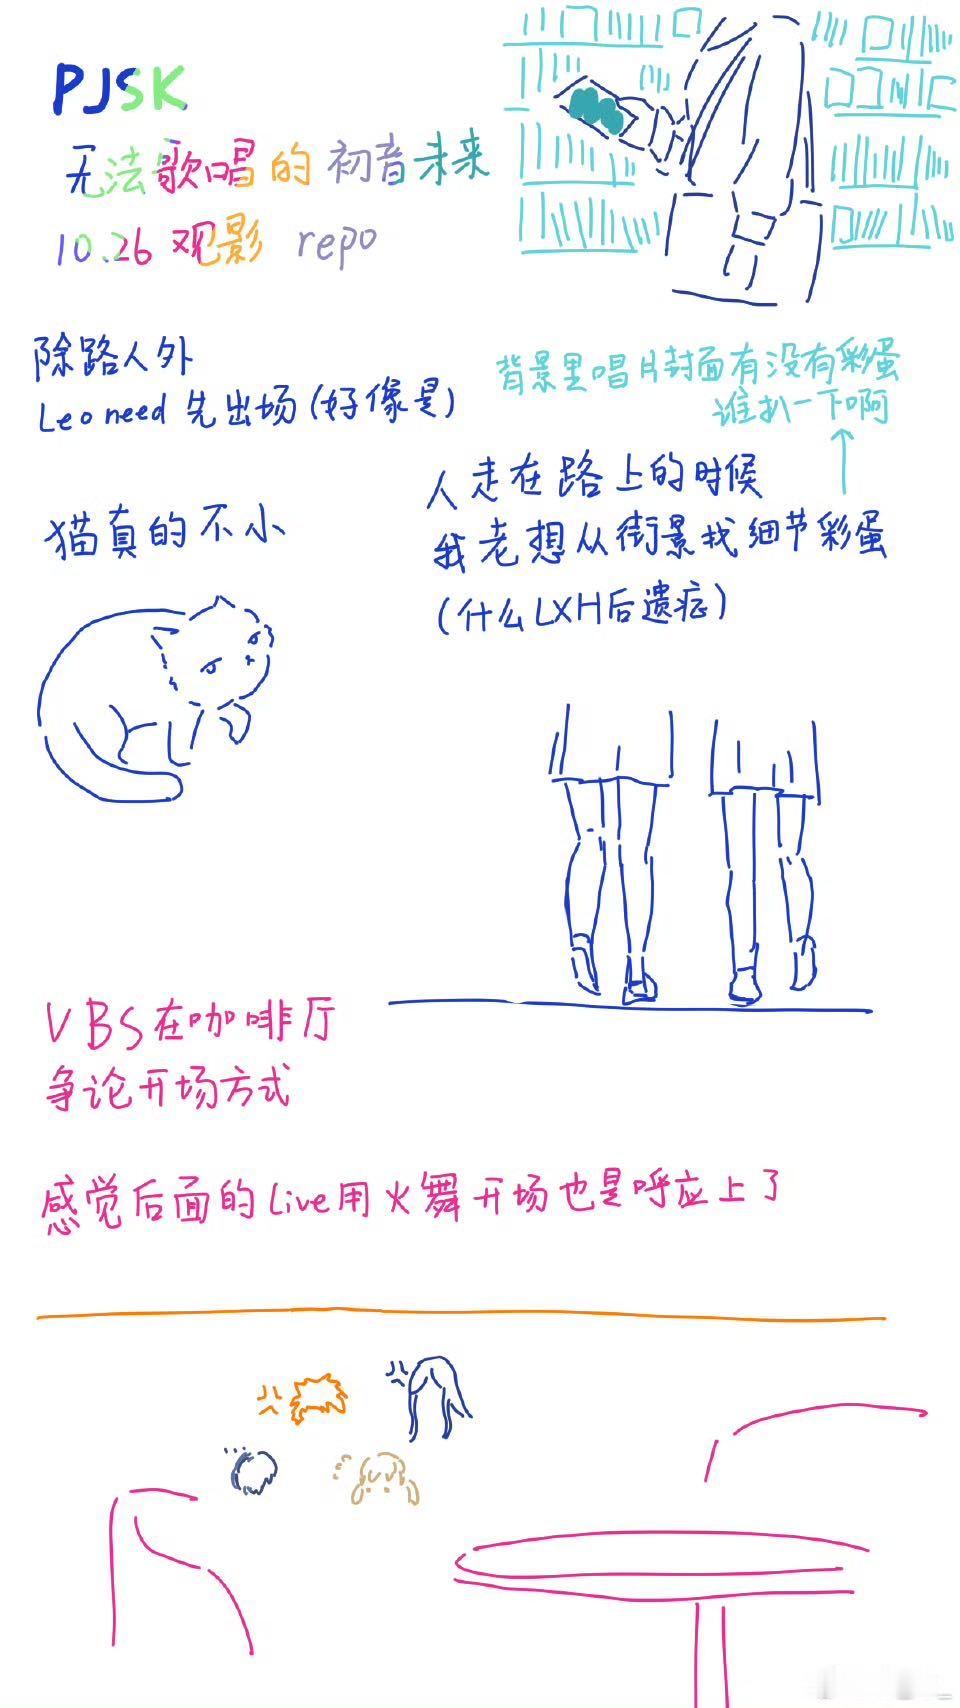 PJSK
无法歌唱的初音未来
10.26 观影 repo
除路人外
Leoneed 先出场(好像是)
背景里唱片封面有没有彩蛋
谁扒一下啊
人走在路上的时候
我老想从街景找细节彩蛋
(什么LXH后遗症)
猫真的不小
VBS在咖啡厅
争论开场方式
感觉后面的live用火舞开场也是呼应上了